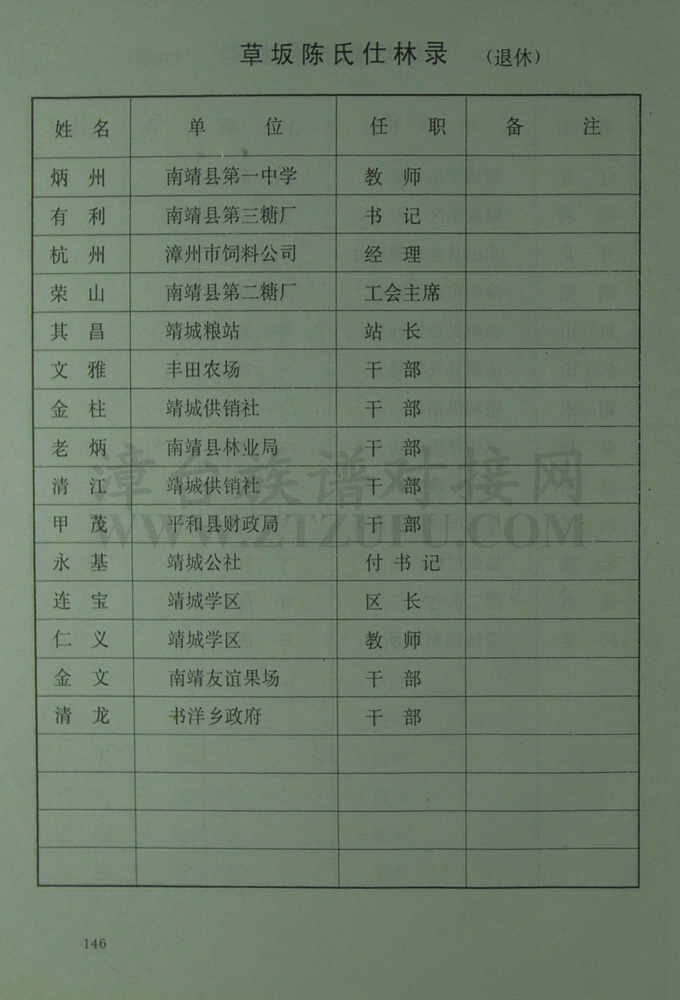 草坂陈氏仕林录 (退休)
姓名 单位 任职 备注
炳州 南靖县第一中学 教师
有利 南靖县第三糖厂 书记
杭州 漳州市饲料公司 经理
荣山 南靖县第二糖厂 工会主席
其昌 靖城粮站 站长
文雅 丰田农场 干部
金柱 靖城供销社 干部
老炳 南靖县林业局 干部
漳台族谱对接网
清江 靖城供销社 干部
甲茂 平和县财政局 干部
WWW.ZTZUPU.COM
永基 靖城公社 付书记
连宝 靖城学区 区长
仁义 靖城学区 教师
金文 南靖友谊果场 干部
清龙 书洋乡政府 干部
146